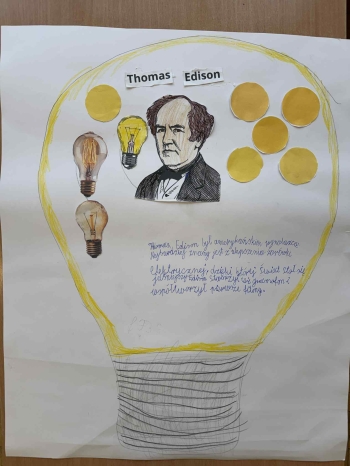 Thomas Edison
Thomas Edison był amerykańskim wynalazcą
Najbardziej znany jest z ulepszenia żarówki
Elektrycznej, dzięki której świat stał się
jaśniejszy. Edison się
współtworzył pierwsze filmy.